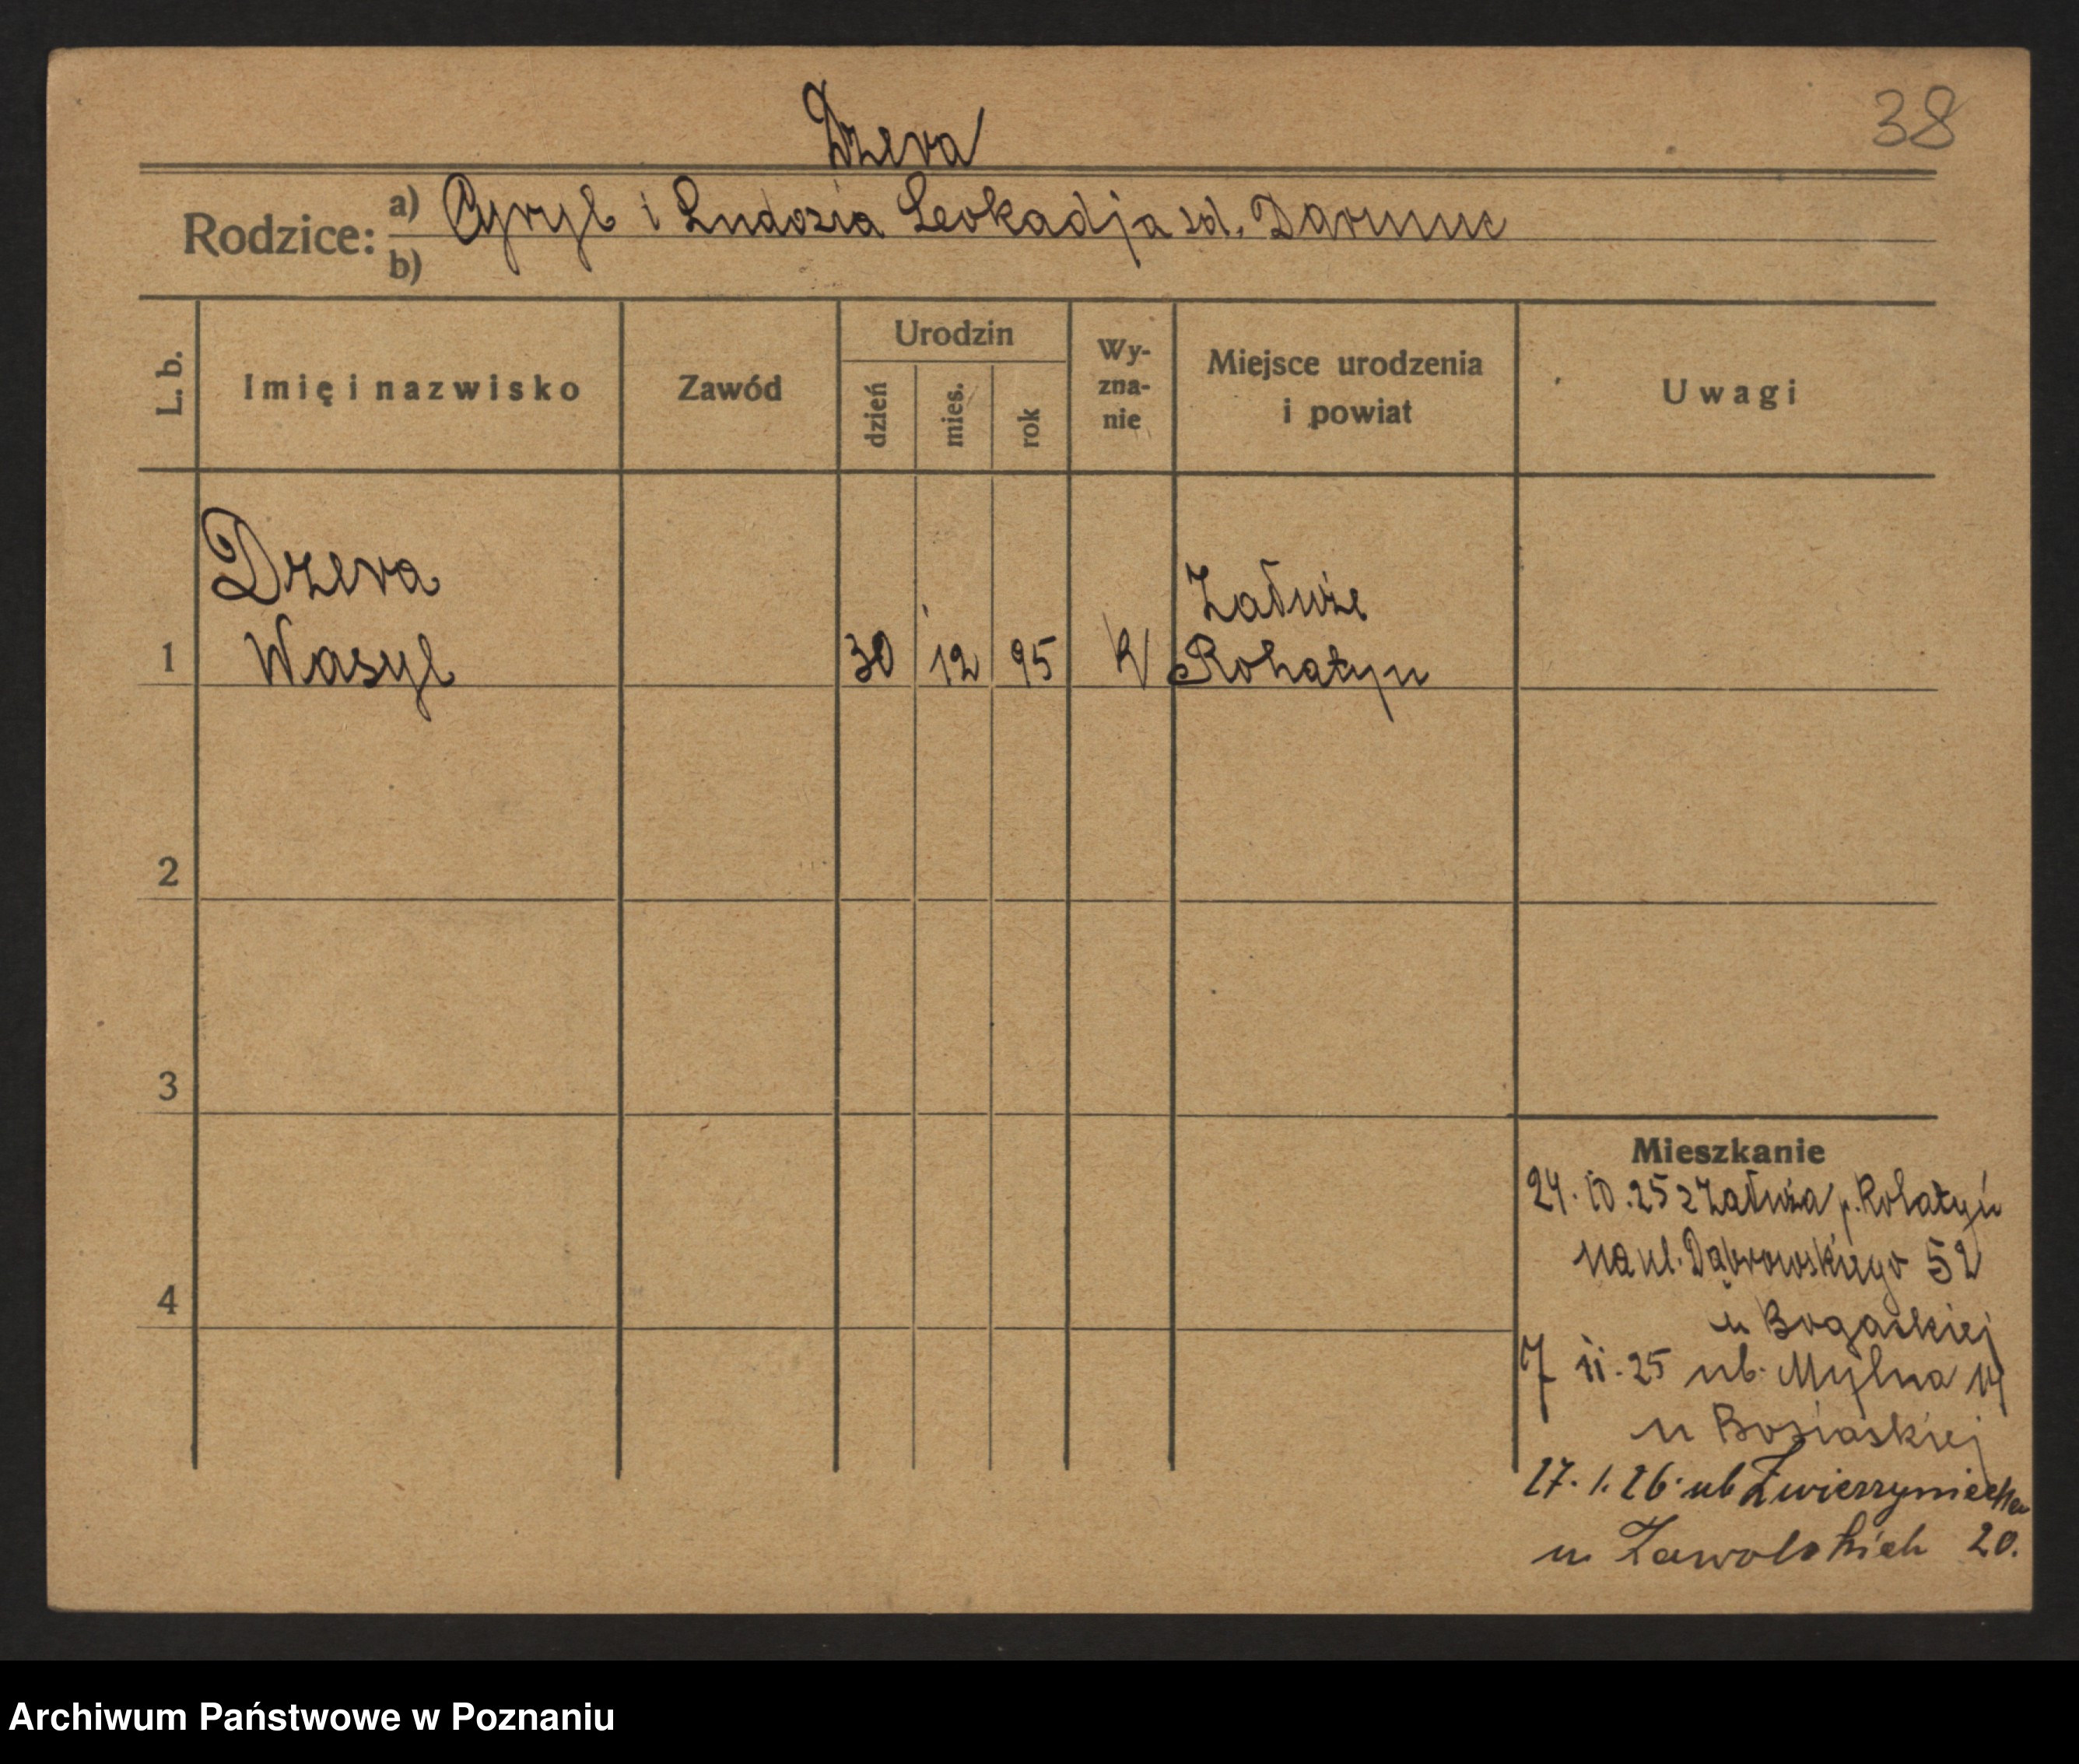 38
Dzera
Rodzice: a) Cyryl i Ludozia Leokadja sd. Darmuc
b)
L. b. Imię i nazwisko Zawód Urodzin dzień mies. rok Wy-zna-nie Miejsce urodzenia i powiat Uwagi
Dzera Załuże
1 Wasyl 30 12 95 K Rohatyn
2
3
Mieszkanie
24. 10. 25 z Załuża p. Rohatyń
4 na ul. Dąbrowskiego 52
u Bogaskiej
7 11. 25 ul. Mylna 14
u Bosiaskiej
27. 1. 26. ul Zwierzyniecka
u Zawolskich 20.
Archiwum Państwowe w Poznaniu